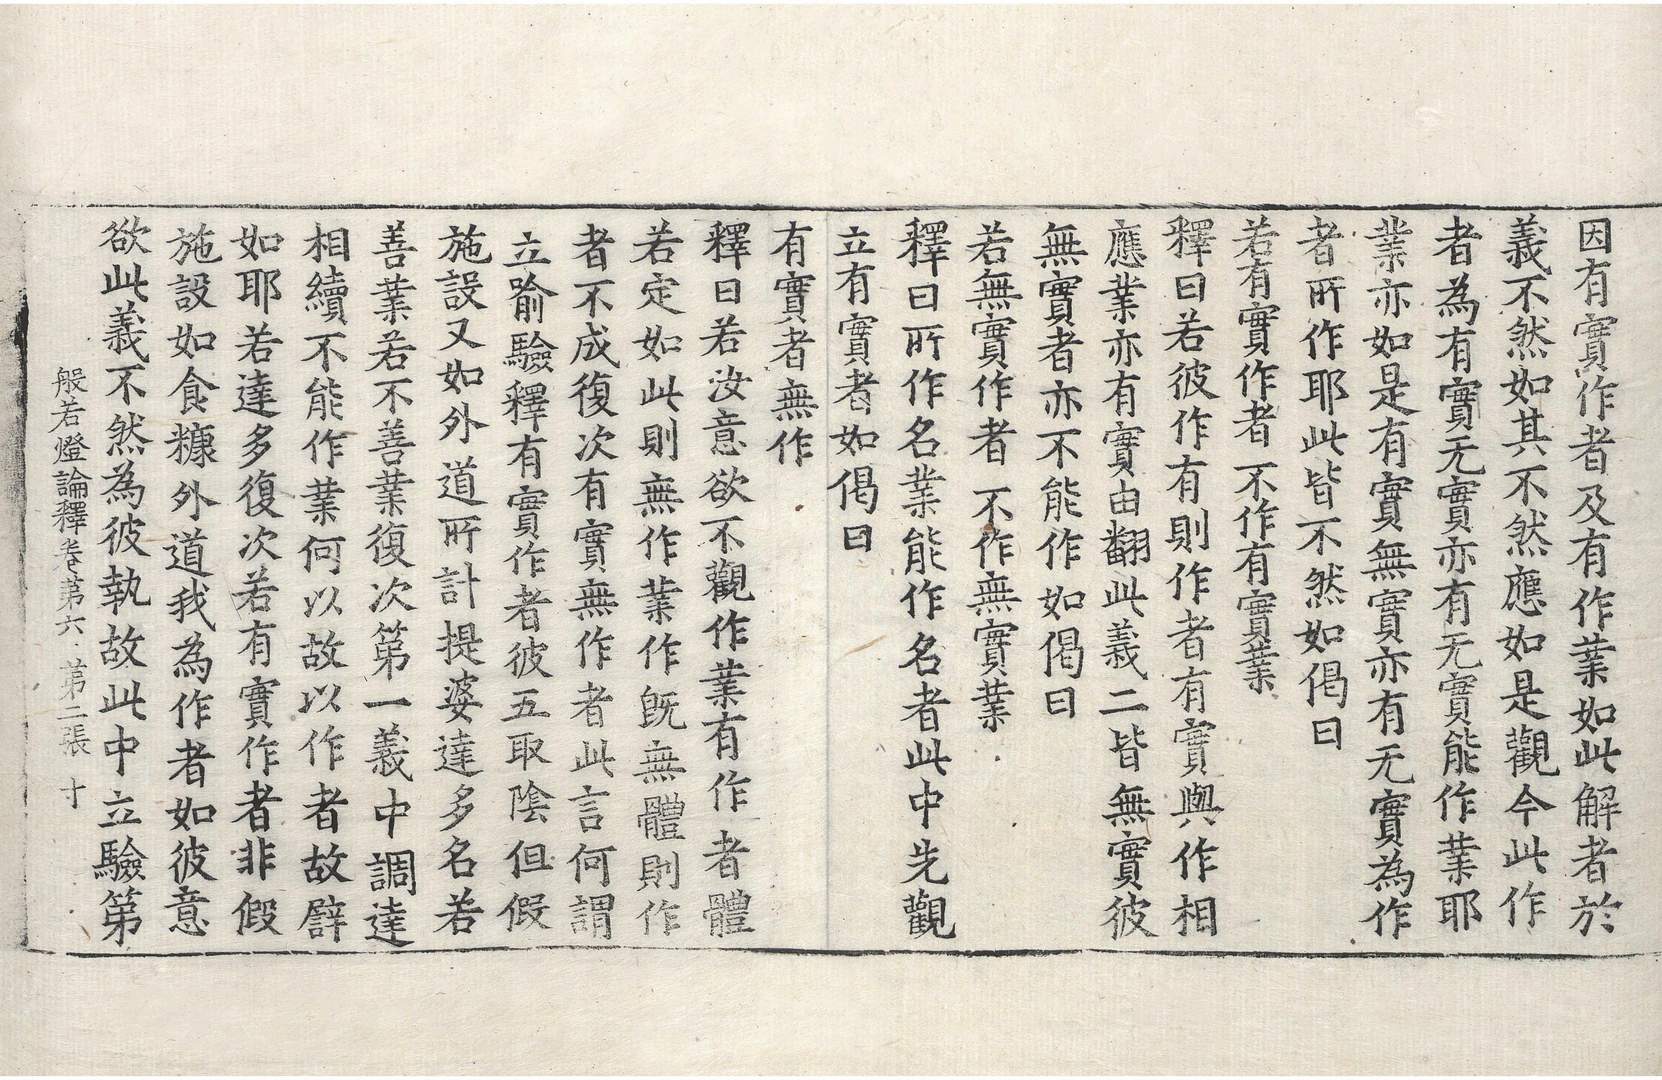 因有實作者及有作業如此解者於
義不然如其不然應如是觀今此作
者為有實无實亦有无實能作業耶
業亦如是有實無實亦有无實為作
者所作耶此皆不然如偈曰
若有實作者不作有實業
釋曰若彼作有則作者有實與作相
應業亦有實由翻此義二皆無實彼
無實者亦不能作如偈曰
若無實作者不作無實業
釋曰所作名業能作名者此中先觀
立有實者如偈曰
有實者無作
釋曰若汝意欲不觀作業有作者體
若定如此則無作業作既無體則作
者不成復次有實無作者此言何謂
立喻驗釋有實作者彼五取陰但假
施設又如外道所計提婆達多名若
善業若不善業復次第一義中調達
相續不能作業何以故以作者故辟
如耶若達多復次若有實作者非假
施設如食糠外道我為作者如彼意
欲此義不然為彼執故此中立驗第
般若燈論釋卷第六 第二張 寸